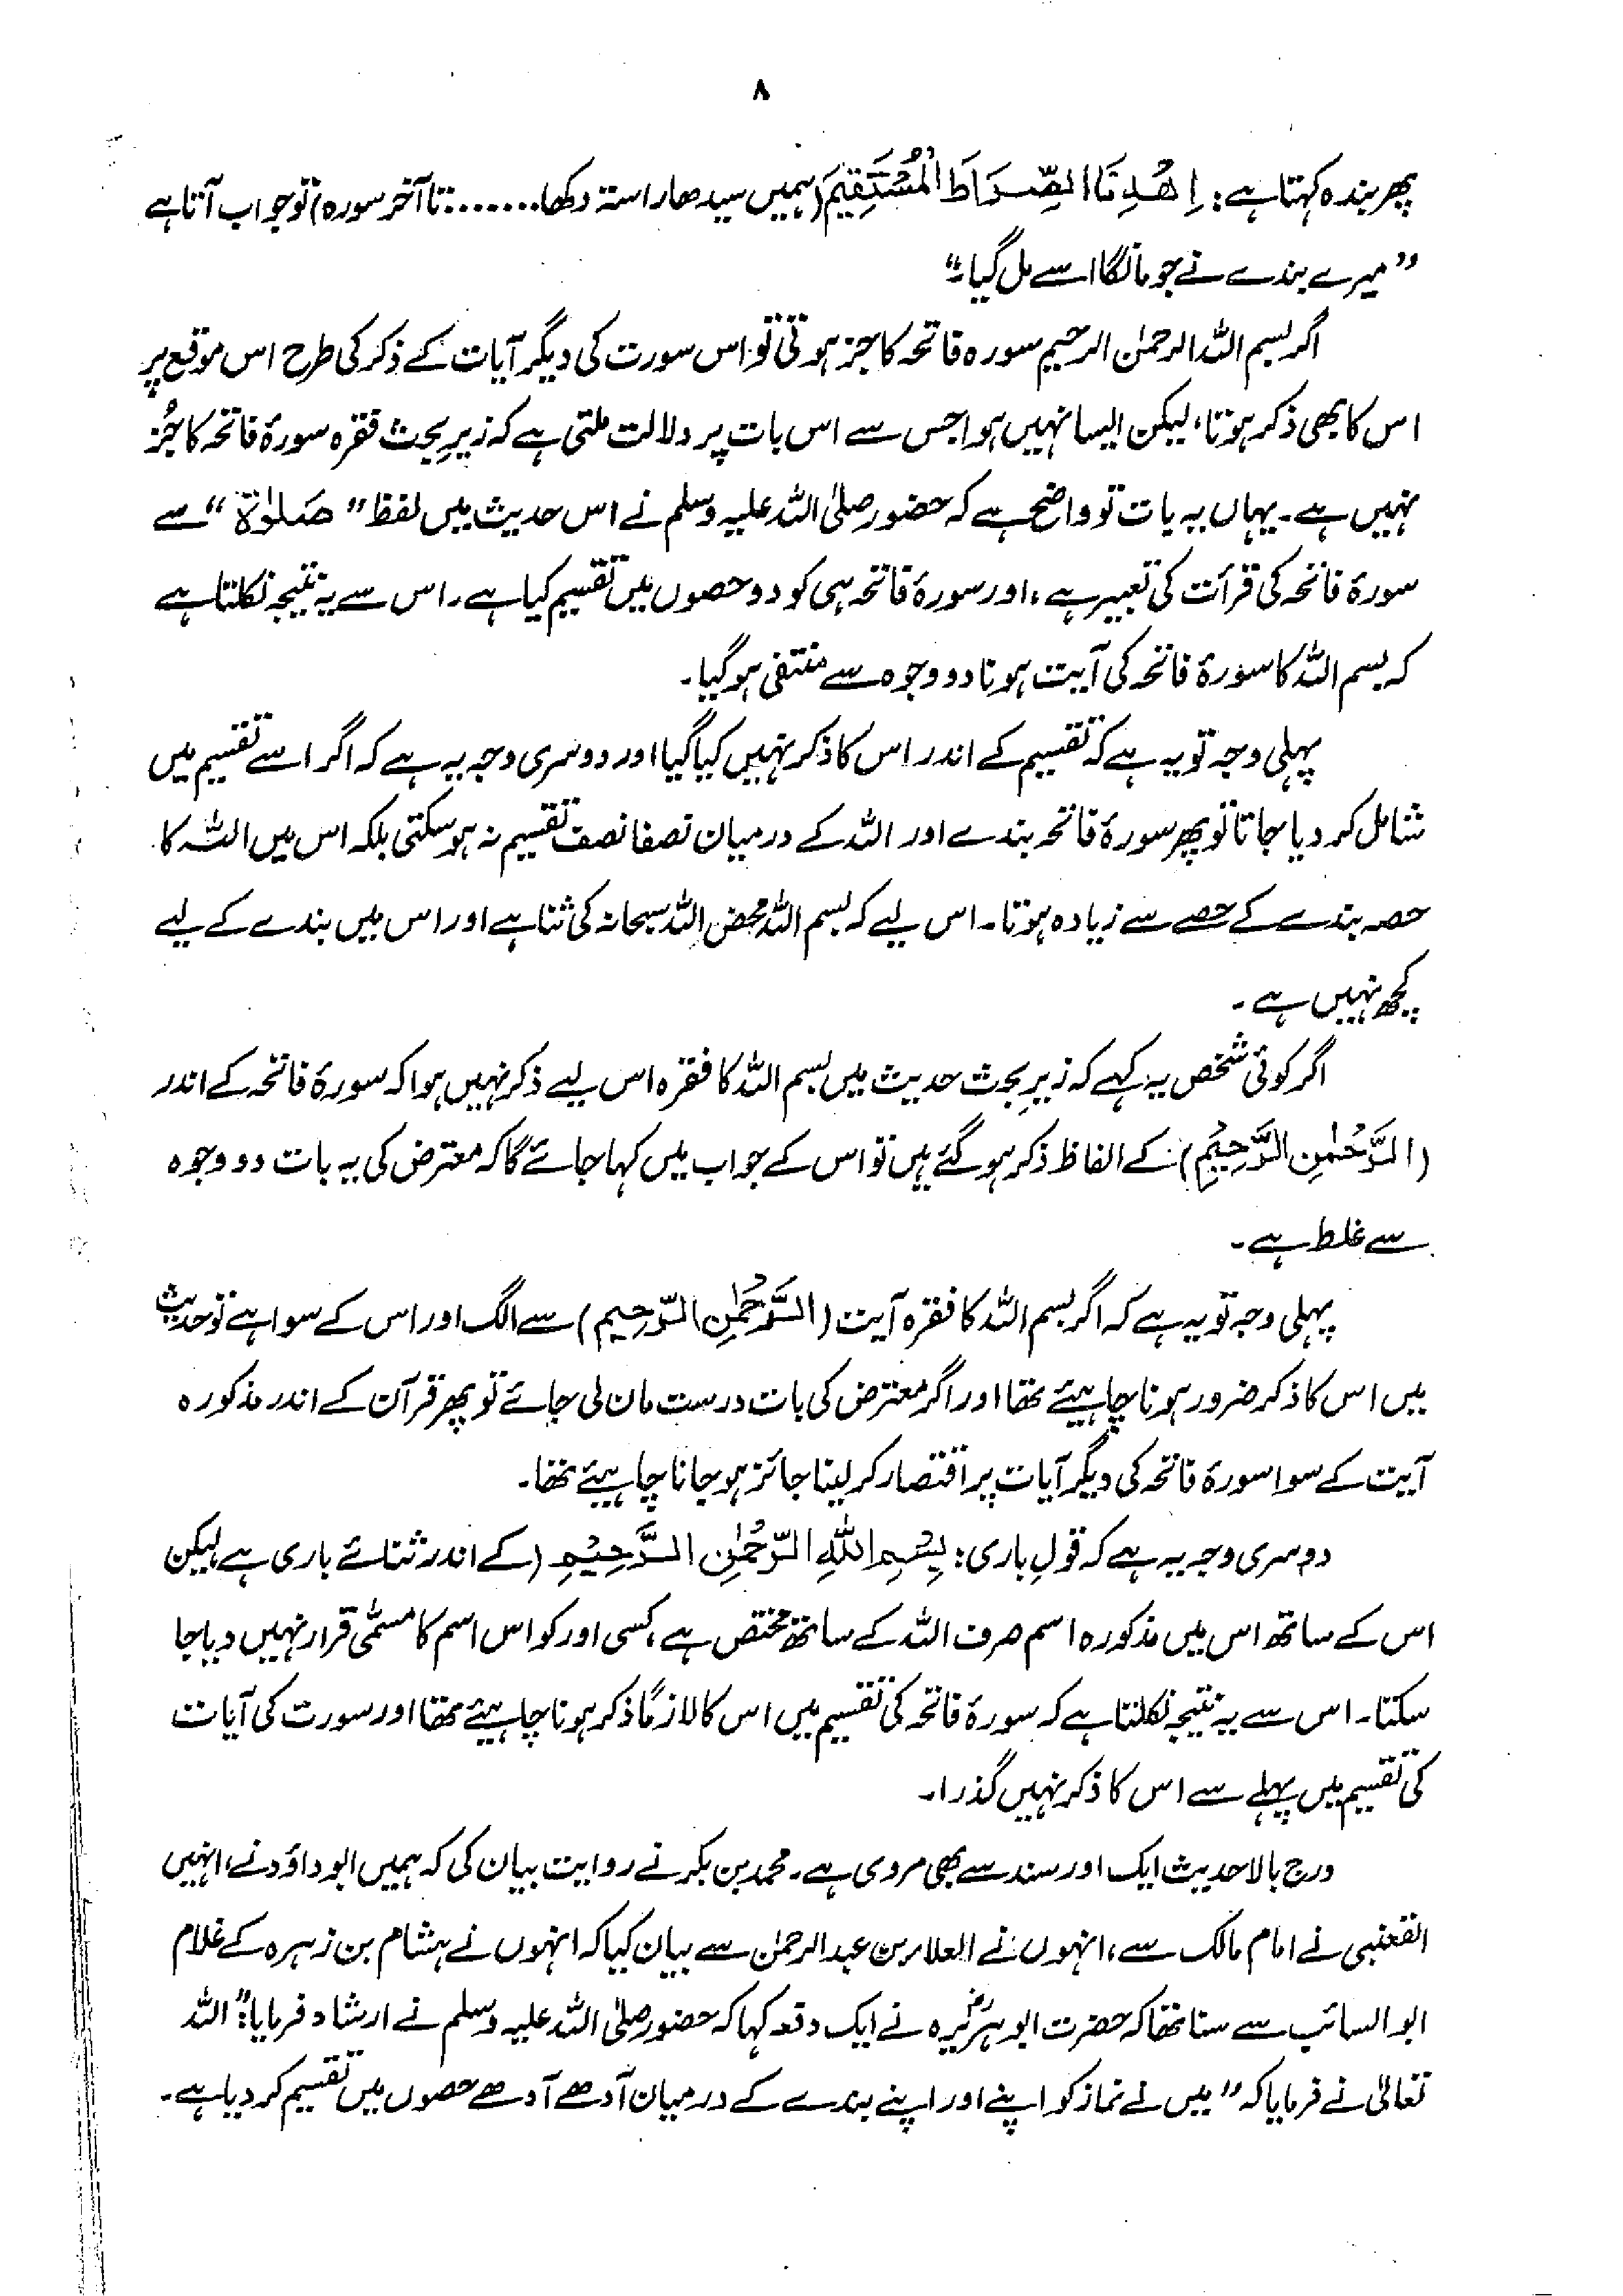 ۸
پھر بندہ کہتا ہے: اِهْدِنَا الصِّرَاطَ الْمُسْتَقِيْمَ (ہمیں سیدھا راستہ دکھا.......تا آخر سورہ) تو جواب آتا ہے
”میرے بندے نے جو مانگا اسے مل گیا۔“
اگر بسم اللہ الرحمٰن الرحیم سورہ فاتحہ کا جز ہوتی تو اس سورت کی دیگر آیات کے ذکر کی طرح اس موقع پر
اس کا بھی ذکر ہوتا، لیکن ایسا نہیں ہوا جس سے اس بات پر دلالت ملتی ہے کہ زیرِ بحث فقرہ سورۂ فاتحہ کا جُز
نہیں ہے۔ یہاں یہ بات تو واضح ہے کہ حضور صلی اللہ علیہ وسلم نے اس حدیث میں لفظ ”صَلوٰة“ سے
سورۂ فاتحہ کی قرأت کی تعبیر ہے، اور سورۂ فاتحہ ہی کو دو حصوں میں تقسیم کیا ہے۔ اس سے یہ نتیجہ نکلتا ہے
کہ بسم اللہ کا سورۂ فاتحہ کی آیت ہونا دو وجوہ سے منتفی ہو گیا۔
پہلی وجہ تو یہ ہے کہ تقسیم کے اندر اس کا ذکر نہیں کیا گیا اور دوسری وجہ یہ ہے کہ اگر اسے تقسیم میں
شامل کر دیا جاتا تو پھر سورۂ فاتحہ بندے اور اللہ کے درمیان نصفا نصف تقسیم نہ ہو سکتی بلکہ اس میں اللہ کا
حصہ بندے کے حصے سے زیادہ ہوتا۔ اس لیے کہ بسم اللہ محض اللہ سبحانہ کی ثنا ہے اور اس میں بندے کے لیے
کچھ نہیں ہے۔
اگر کوئی شخص یہ کہے کہ زیرِ بحث حدیث میں بسم اللہ کا فقرہ اس لیے ذکر نہیں ہوا کہ سورۂ فاتحہ کے اندر
(الرَّحْمٰنِ الرَّحِيْمِ) کے الفاظ ذکر ہو گئے ہیں تو اس کے جواب میں کہا جائے گا کہ معترض کی یہ بات دو وجوہ
سے غلط ہے۔
پہلی وجہ تو یہ ہے کہ اگر بسم اللہ کا فقرہ آیت (الرَّحْمٰنِ الرَّحِيم) سے الگ اور اس کے سوا ہے تو حدیث
میں اس کا ذکر ضرور ہونا چاہیئے تھا اور اگر معترض کی بات درست مان لی جائے تو پھر قرآن کے اندر مذکورہ
آیت کے سوا سورۂ فاتحہ کی دیگر آیات پر اقتصار کر لینا جائز ہو جانا چاہیئے تھا۔
دوسری وجہ یہ ہے کہ قولِ باری: بِسْمِ اللّٰهِ الرَّحْمٰنِ الرَّحِيْمِ (کے اندر ثنائے باری ہے لیکن
اس کے ساتھ اس میں مذکورہ اسم صرف اللہ کے ساتھ مختص ہے، کسی اور کو اس اسم کا مسمّٰی قرار نہیں دیا جا
سکتا۔ اس سے یہ نتیجہ نکلتا ہے کہ سورۂ فاتحہ کی تقسیم میں اس کا لازمًا ذکر ہونا چاہیئے تھا اور سورت کی آیات
کی تقسیم میں پہلے سے اس کا ذکر نہیں گذرا۔
درج بالا حدیث ایک اور سند سے بھی مروی ہے۔ محمد بن بکر نے روایت بیان کی کہ ہمیں ابو داؤد نے، انہیں
القعنبی نے امام مالک سے، انہوں نے العلاء بن عبدالرحمٰن سے بیان کیا کہ انہوں نے ہشام بن زہرہ کے غلام
ابو السائب سے سنا تھا کہ حضرت ابو ہریرہؓ نے ایک دفعہ کہا کہ حضور صلی اللہ علیہ وسلم نے ارشاد فرمایا: ”اللہ
تعالیٰ نے فرمایا کہ ”میں نے نماز کو اپنے اور اپنے بندے کے درمیان آدھے آدھے حصوں میں تقسیم کر دیا ہے۔